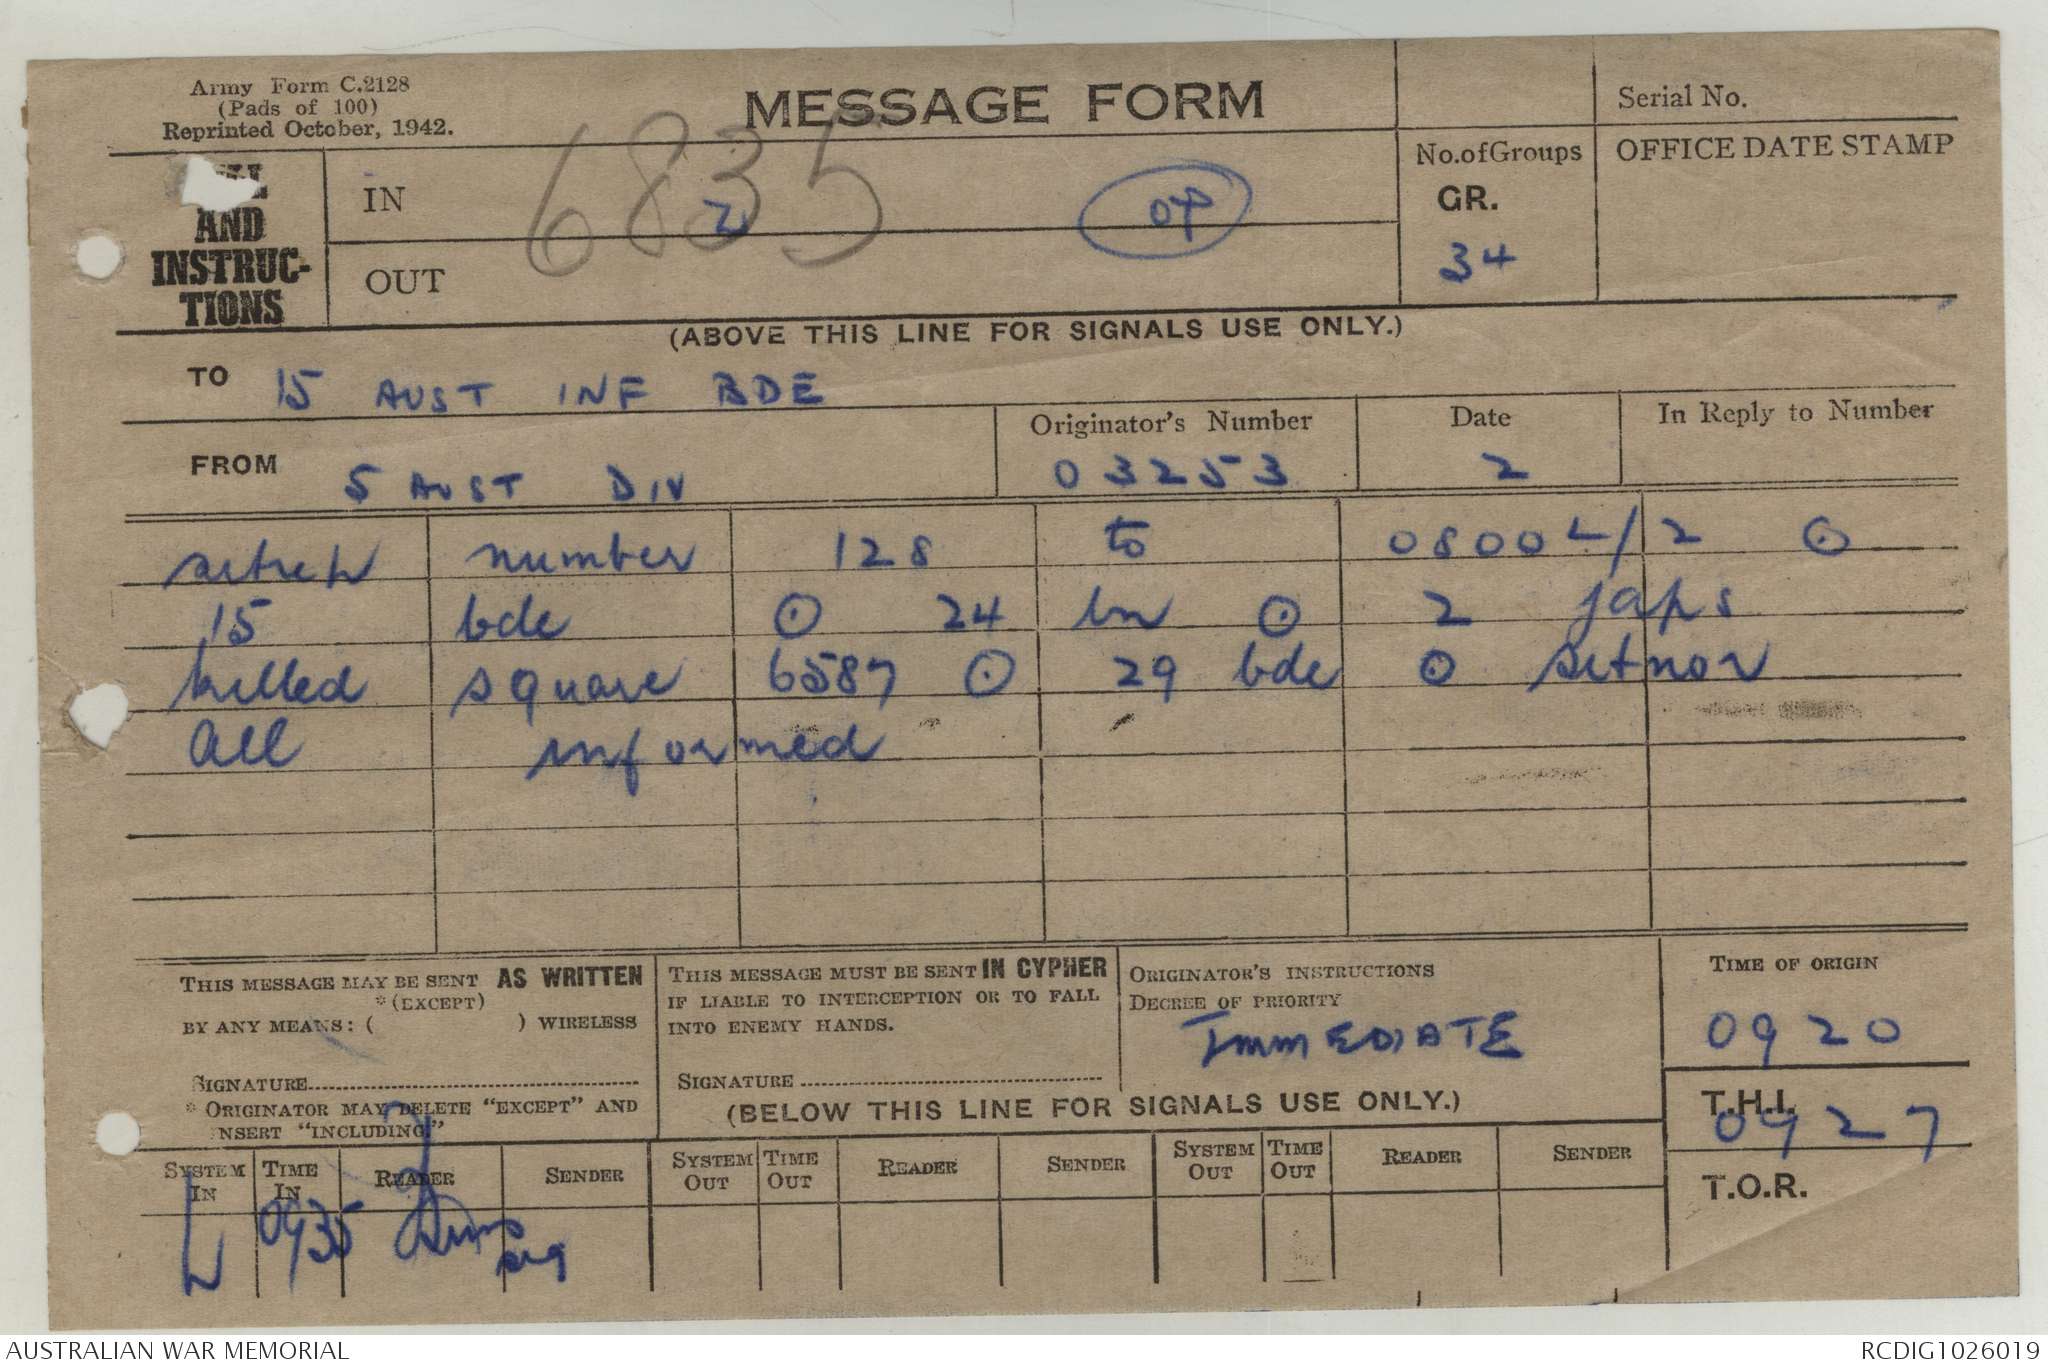 Army Form C.2128
(Pads of 100)
Reprinted October, 1942.
MESSAGE FORM
Serial No.
6835
AND
INSTRUC-
TIONS
IN
OUT
OP
No. of Groups
GR.
34
OFFICE DATE STAMP
(ABOVE THIS LINE FOR SIGNALS USE ONLY.)
TO 15 AUST INF BDE
FROM 5 AUST DIV
Originator's Number
03253
Date
2
In Reply to Number
sitrep number 128 to 0800L/2 ⊙
15 bde ⊙ 24 bn ⊙ 2 japs
killed square 6587 ⊙ 29 bde ⊙ sitnor
all informed
THIS MESSAGE MAY BE SENT AS WRITTEN
*(EXCEPT)
BY ANY MEANS: ( ) WIRELESS
SIGNATURE
* ORIGINATOR MAY DELETE "EXCEPT" AND
NSERT "INCLUDING"
THIS MESSAGE MUST BE SENT IN CYPHER
IF LIABLE TO INTERCEPTION OR TO FALL
INTO ENEMY HANDS.
SIGNATURE
ORIGINATOR'S INSTRUCTIONS
DEGREE OF PRIORITY
IMMEDIATE
TIME OF ORIGIN
0920
(BELOW THIS LINE FOR SIGNALS USE ONLY.)
T.H.I.
0927
T.O.R.
SYSTEM IN
TIME IN
READER
SENDER
SYSTEM OUT
TIME OUT
READER
SENDER
SYSTEM OUT
TIME OUT
READER
SENDER
L 0935
sig
AUSTRALIAN WAR MEMORIAL
RCDIG1026019